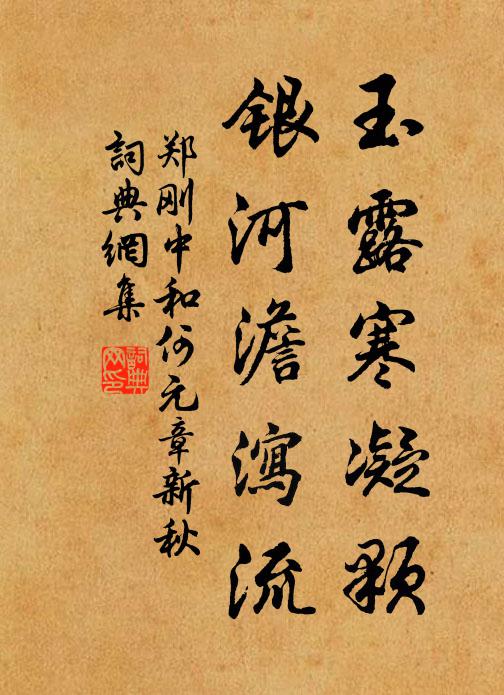 玉露寒凝颗
银河澹瀉流
郑刚中和何元章新秋
詞典網集
詞典网印